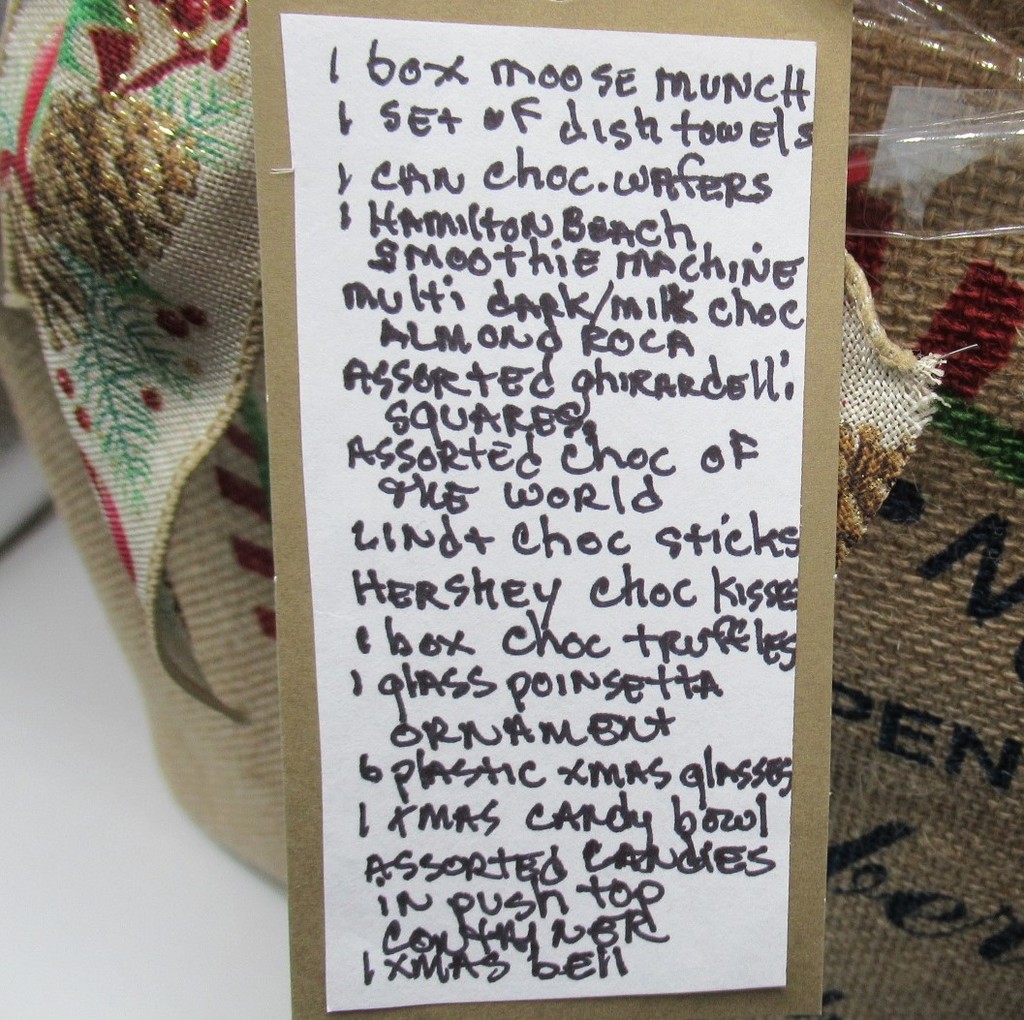 1 box moose munch
1 set of dish towels
1 can choc. wafers
1 Hamilton Beach
smoothie machine
multi dark/milk choc
Almond Roca
Assorted ghirardelli
squares.
Assorted choc of
the world
Lindt choc sticks
Hershey choc kisses
1 box choc truffles
1 glass poinsetta
ornament
6 plastic xmas glasses
1 xmas candy bowl
Assorted candies
in push top
container
1 xmas bell
PEN